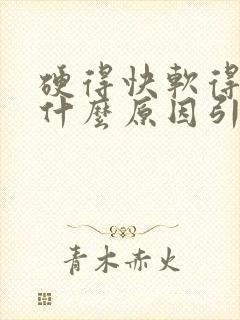 硬得快軟得
什麼原因引
青木赤火